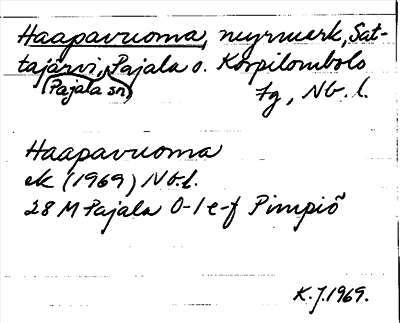 Haapavuoma, myrmark, Sat-
tajärvi, Pajala o. Korpilombolo
(Pajala sn) Fg, Nb.l.
Haapavuoma
ek (1969) Nb.l.
28 M Pajala 0-1 e-f Pimpiö
K.J. 1969.